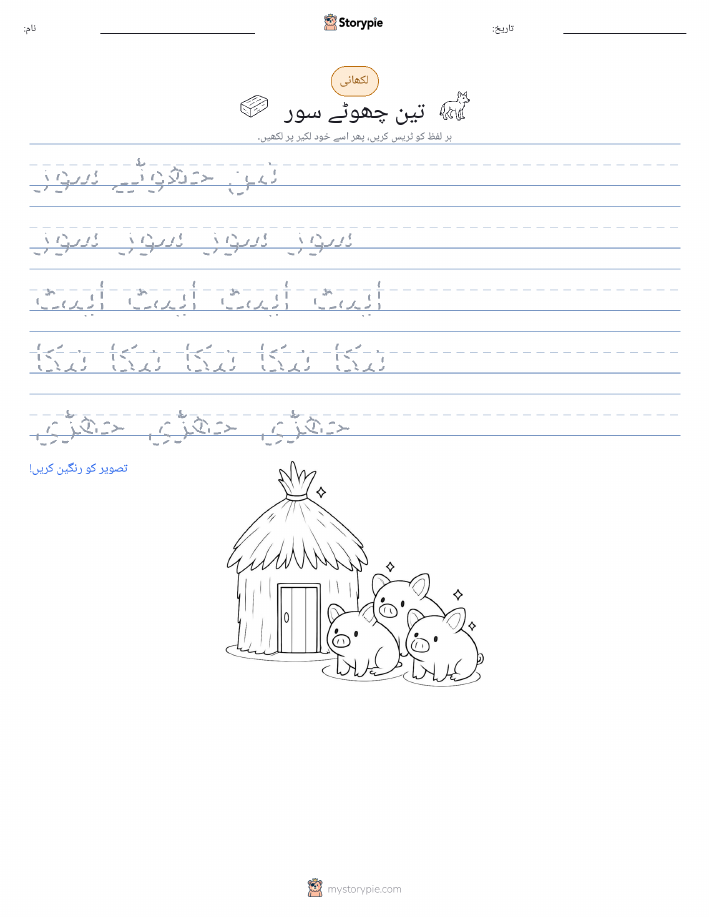 Storypie
نام:
تاریخ:
لکھائی
تین چھوٹے سور
ہر لفظ کو ٹریس کریں، پھر اسے خود لکیر پر لکھیں۔
تین چھوٹے سور
سور سور سور سور
اینٹ اینٹ اینٹ اینٹ
تنکا تنکا تنکا تنکا تنکا
چھڑی چھڑی چھڑی
تصویر کو رنگین کریں!
mystorypie.com